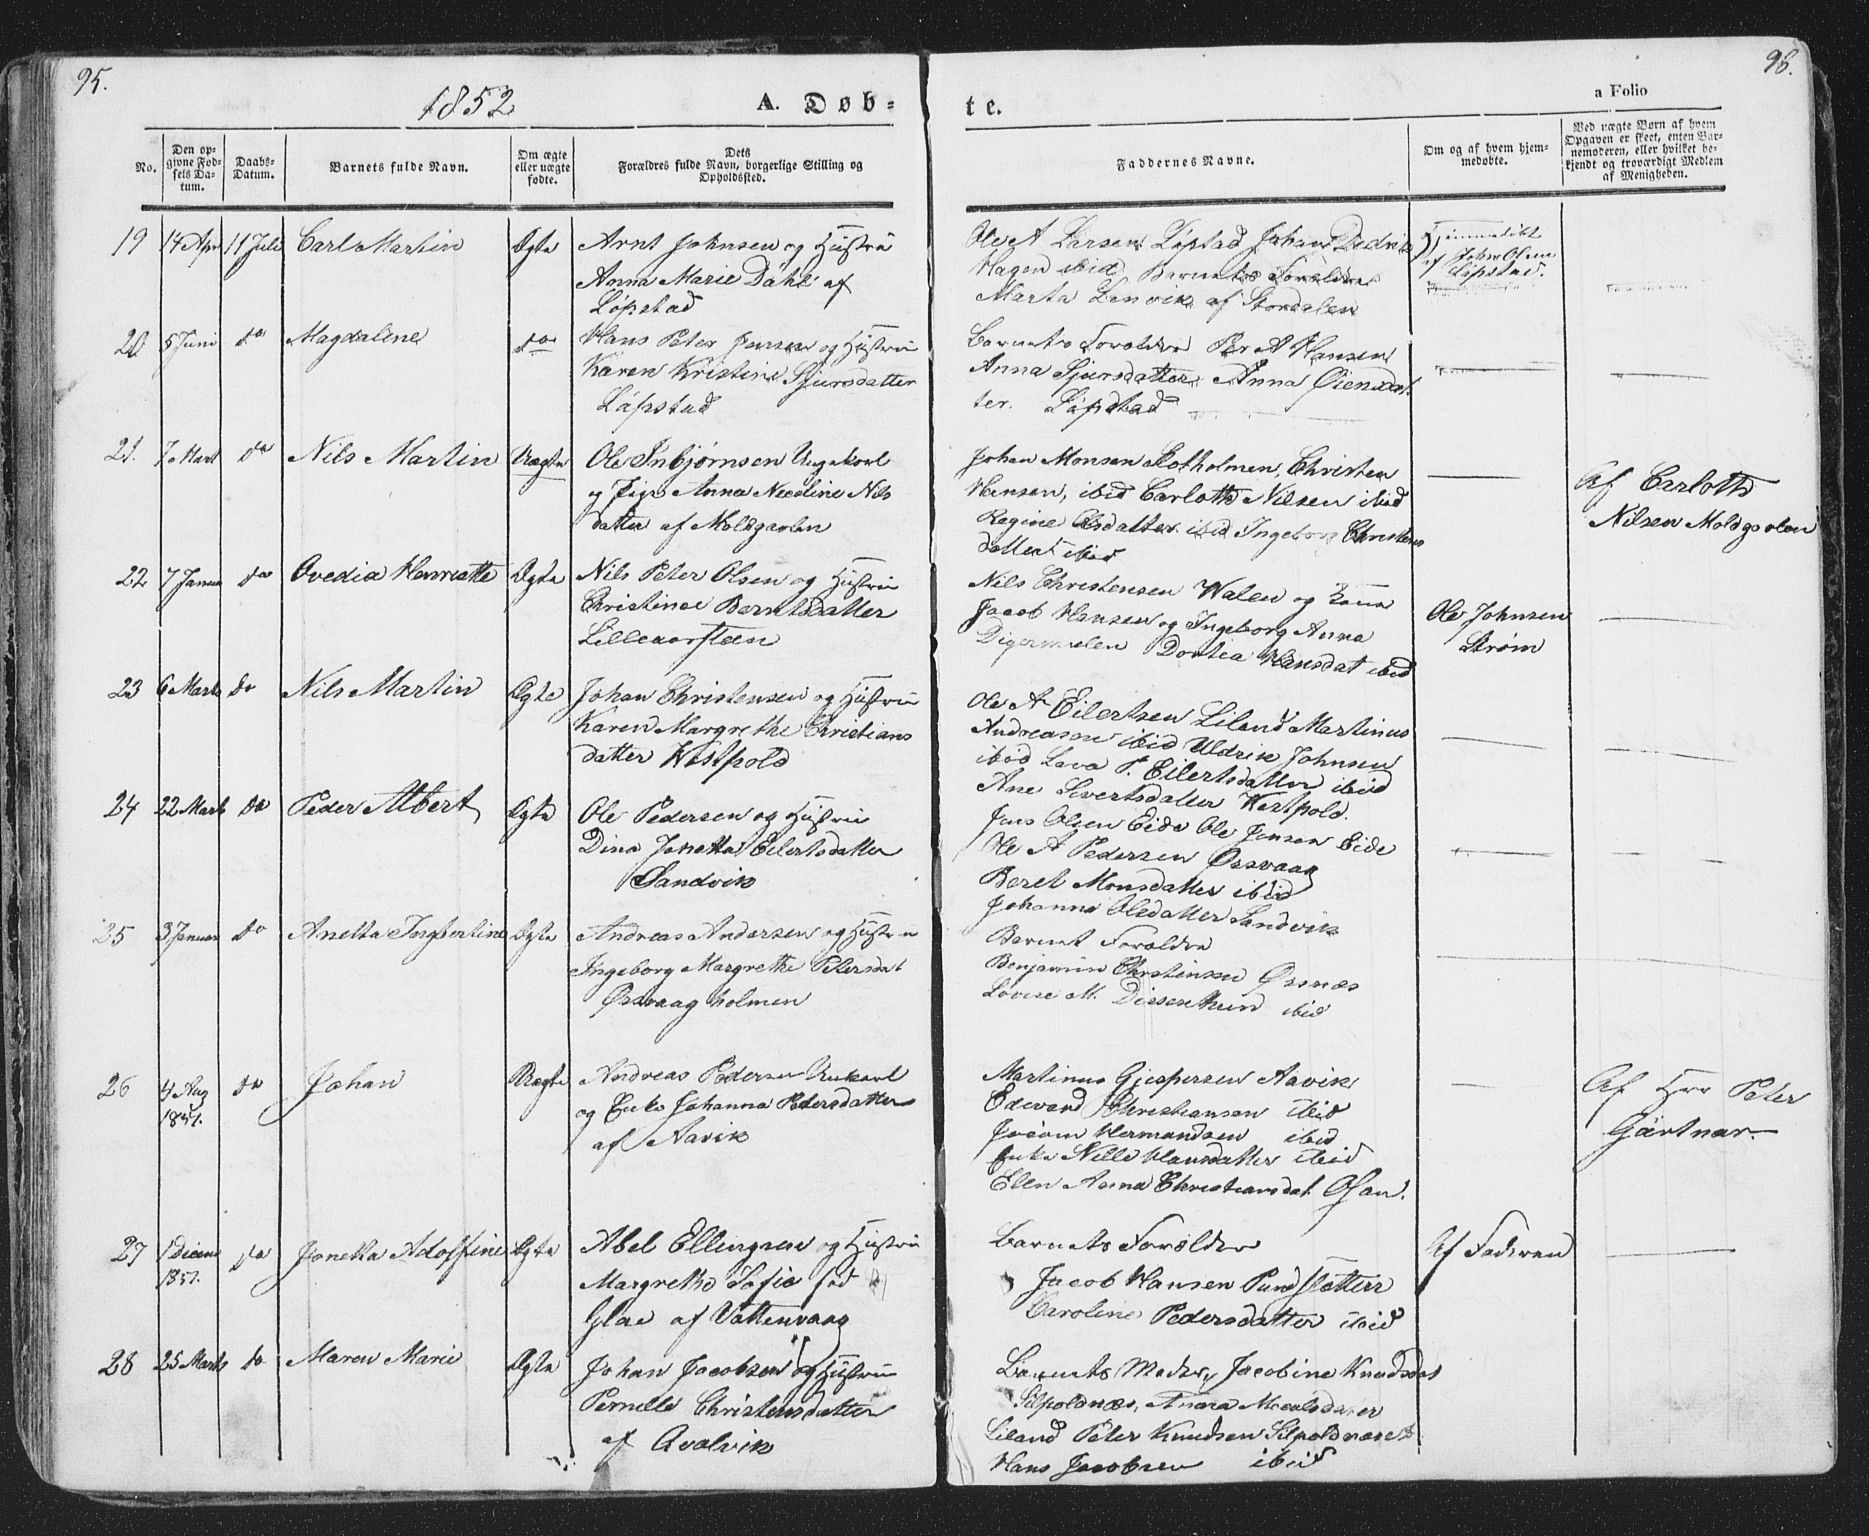 95.
1852
A. Døb-
No.
Den op-
givne Fød-
sels Da-
tum.
Daabs-
Datum.
Barnets fulde Navn.
Om ægte
eller uægte
fødte.
Dets
Forældres fulde Navn, borgerlige Stilling og
Opholdssted.
19 14 Apr 11 Juli Carl Martin Ægte Arnt Johnsen og Hustru
Anna Marie Dahl af
Løpstad
20 5 Juni do Magdalene do Hans Peter Jensen og Hustru
Karen Kristine Sjursdatter
Løpstad
21. 7 Mart do Nils Martin Uægte Ole Inbjørnsen Ungekarl
og Pige Anna Nils
datter af Moldgaolen
22 7 Januar do Ovedia Henriette Ægte Nils Peter Olsen og Hustru
Christine Berntsdatter
23 6 Marts do Nils Martin Ægte Johan Christensen og Hustru
Karen Margrethe Christians
datter Westpold
24 22 Marts do Peder Albert Ægte Ole Pedersen og Hustru
Dina Janetta Eilertsdatter
Sandvik
25 3 Januar do Anetta Ingbertine Ægte Andreas Andersen og Hustru
Ingeborg Margrethe Petersdat
Øssvaag holmen
26 4 Aug
1851. do Johan Uægte Andreas Pedersen Unkarl
og Enke Johanna Pedersdatter
af Aavik
27 1 Decem
1851. do Jonetta Adolfine Ægte Abel Ellingsen og Hustru
Margrethe Sofie fød
af Vattenvaag
28 25 Marts do Maren Marie Ægte Johan Jacobsen og Hustru
Pernille Christensdatter
af
96.
te.
a Folio
Faddernes Navne.
Om og af hvem hjem-
medøbte.
Ved uægte Børn af hvem
Opgaven er skeet, enten Bar-
nemoderen, eller hvilket be-
kjendt og troværdigt Medlem
af Menigheden.
Ole A Larsen Løpstad Johan Dedrik
Hagen ibid Barnets Forældre
Marta Lenvik af Stordalen
af John Olsen
Løpstad.
Barnets Forældre Per A Hansen
Anna Sjursdatter Anna Øiensdat
ter. Løpstad
Johan Monsen Rotholmen, Christen
Hansen, ibid Carloth Nilsen ibid
Regine Olsdatter ibid Ingeborg Christens
datter ibid
Af Carloth
Nilsen Moldgaolen
Nils Christensen Walen og Kone
Jacob Hansen og Ingeborg Anna
Digermulen Dortea Hansdat ibid
Ole Johnsen
Strøm
Ole A Eilertsen Liland Martinus
Andreasen ibid Uldrik Johnsen
ibid Lava P. Eilertsdatter ibid
Ane Sivertsdatter Westpold.
Jens Olsen Eide Ole Jensen Eide
Ole A Pedersen Øssvaag
Beret Monsdatter ibid
Johanna Olsdatter Sandvik
Barnet Forældre
Benjamin Christensen Øssnæs
Lovise M. ibid
Martinus Gjespersen Aavik
Edevard Christiansen ibid
Joakim Hermandsen ibid
Enke Nille Hansdatter ibid
Elen Anna Christiansdat Osan.
Af Hrr Peter
Gärtner.
Barnets Forældre
Jacob Hansen Pundslætter
Caroline Pedersdatter ibid
Af Faderen
Barnets Moder, Jacobine Knudsdat
Anna
Liland Peter Knudsen
Hans Jacobsen ibid